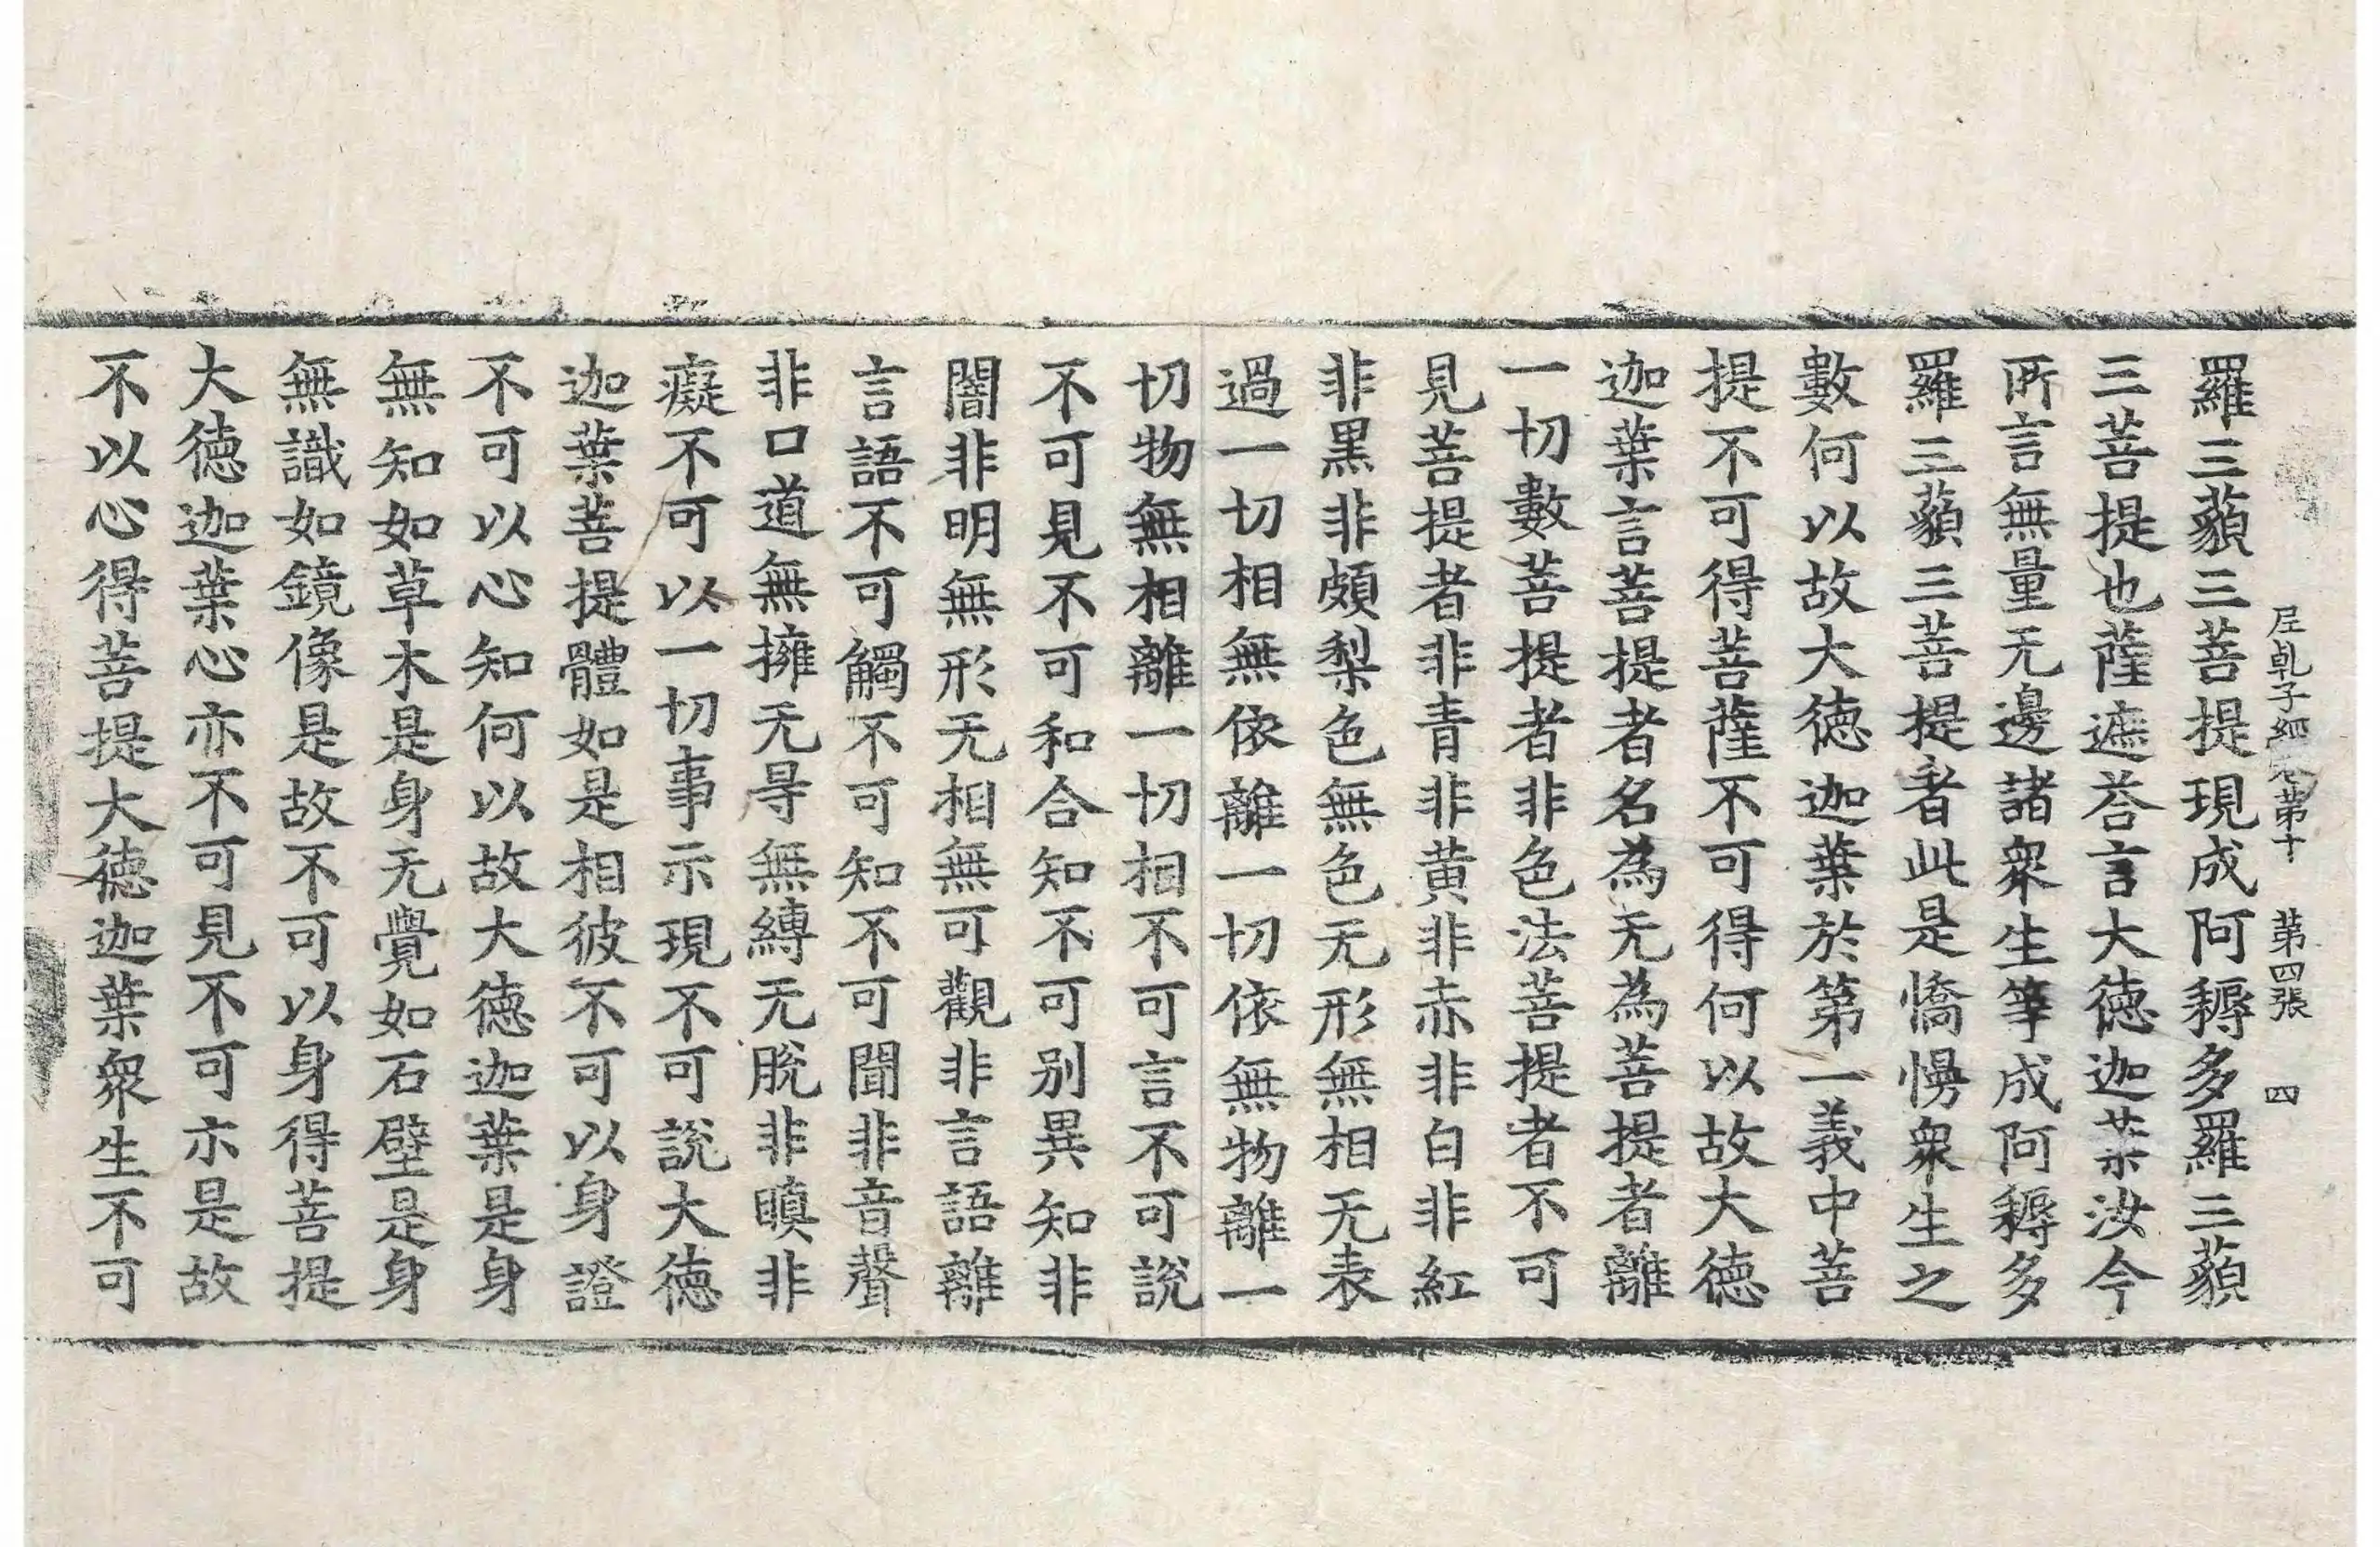 羅三藐三菩提現成阿耨多羅三藐
三菩提也薩遮荅言大德迦葉汝今
所言無量无邊諸衆生等成阿耨多
羅三藐三菩提者此是憍慢衆生之
數何以故大德迦葉於第一義中菩
提不可得菩薩不可得何以故大德
迦葉言菩提者名為无為菩提者離
一切數菩提者非色法菩提者不可
見菩提者非青非黄非赤非白非紅
非黑非頗梨色無色无形無相无表
過一切相無依離一切依無物離一
切物無相離一切相不可言不可說
不可見不可和合知不可別異知非
闇非明無形无相無可觀非言語離
言語不可觸不可知不可聞非音聲
非口道無擁无㝵無縛无脫非瞋非
癡不可以一切事示現不可說大德
迦葉菩提體如是相彼不可以身證
不可以心知何以故大德迦葉是身
無知如草木是身无覺如石壁是身
無識如鏡像是故不可以身得菩提
大德迦葉心亦不可見不可亦是故
不以心得菩提大德迦葉衆生不可
尼乹子經卷第十 第四張 四